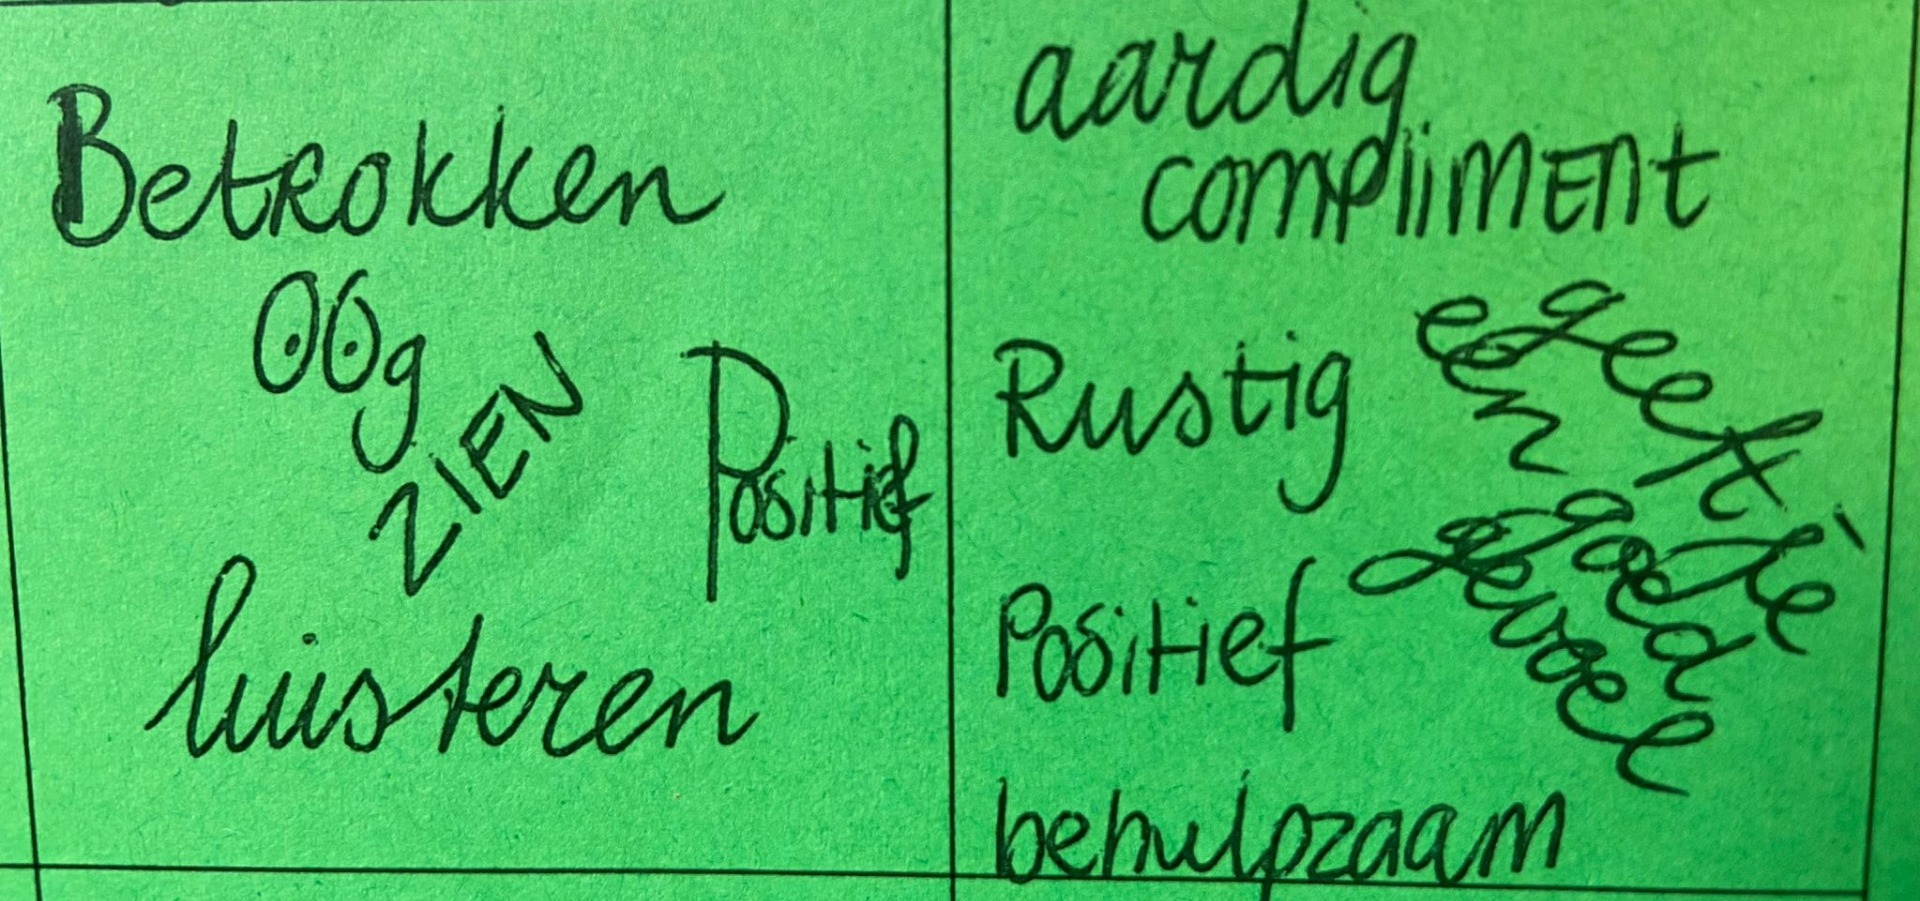 Betrokken
OOg
ZIEN
Positief
luisteren
aardig
compliment
Rustig
geeft je
een goed
gevoel
Positief
behulpzaam